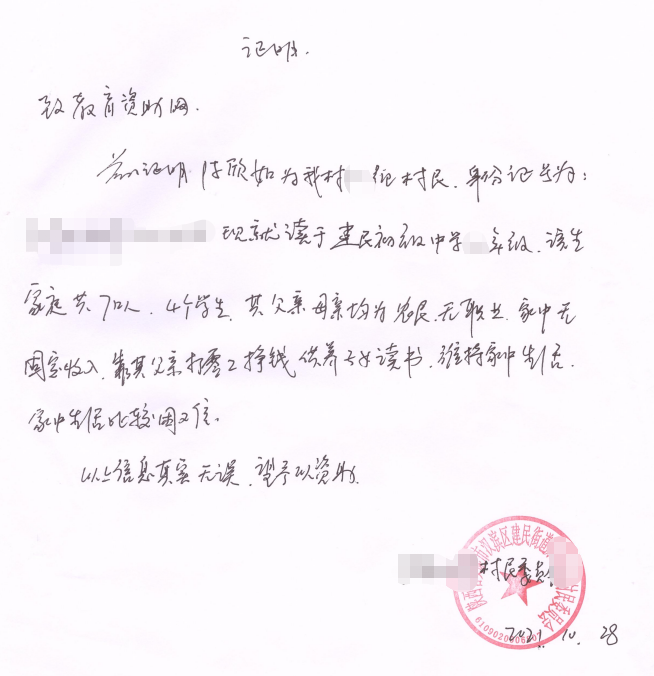 证明.
致教育资助网.
兹证明 陈欣如为我村 组村民.身份证号为:
现就读于建民初级中学 年级.该生
家庭共7口人.4个学生.其父亲母亲均为农民.无职业.家中无
固定收入.靠其父亲打零工挣钱供养子女读书.维持家中生活.
家中生活比较困难.
以上信息真实无误.望予以资助.
村民委员
2021.10.28
陕西 市汉滨区建民街道 村民委员会